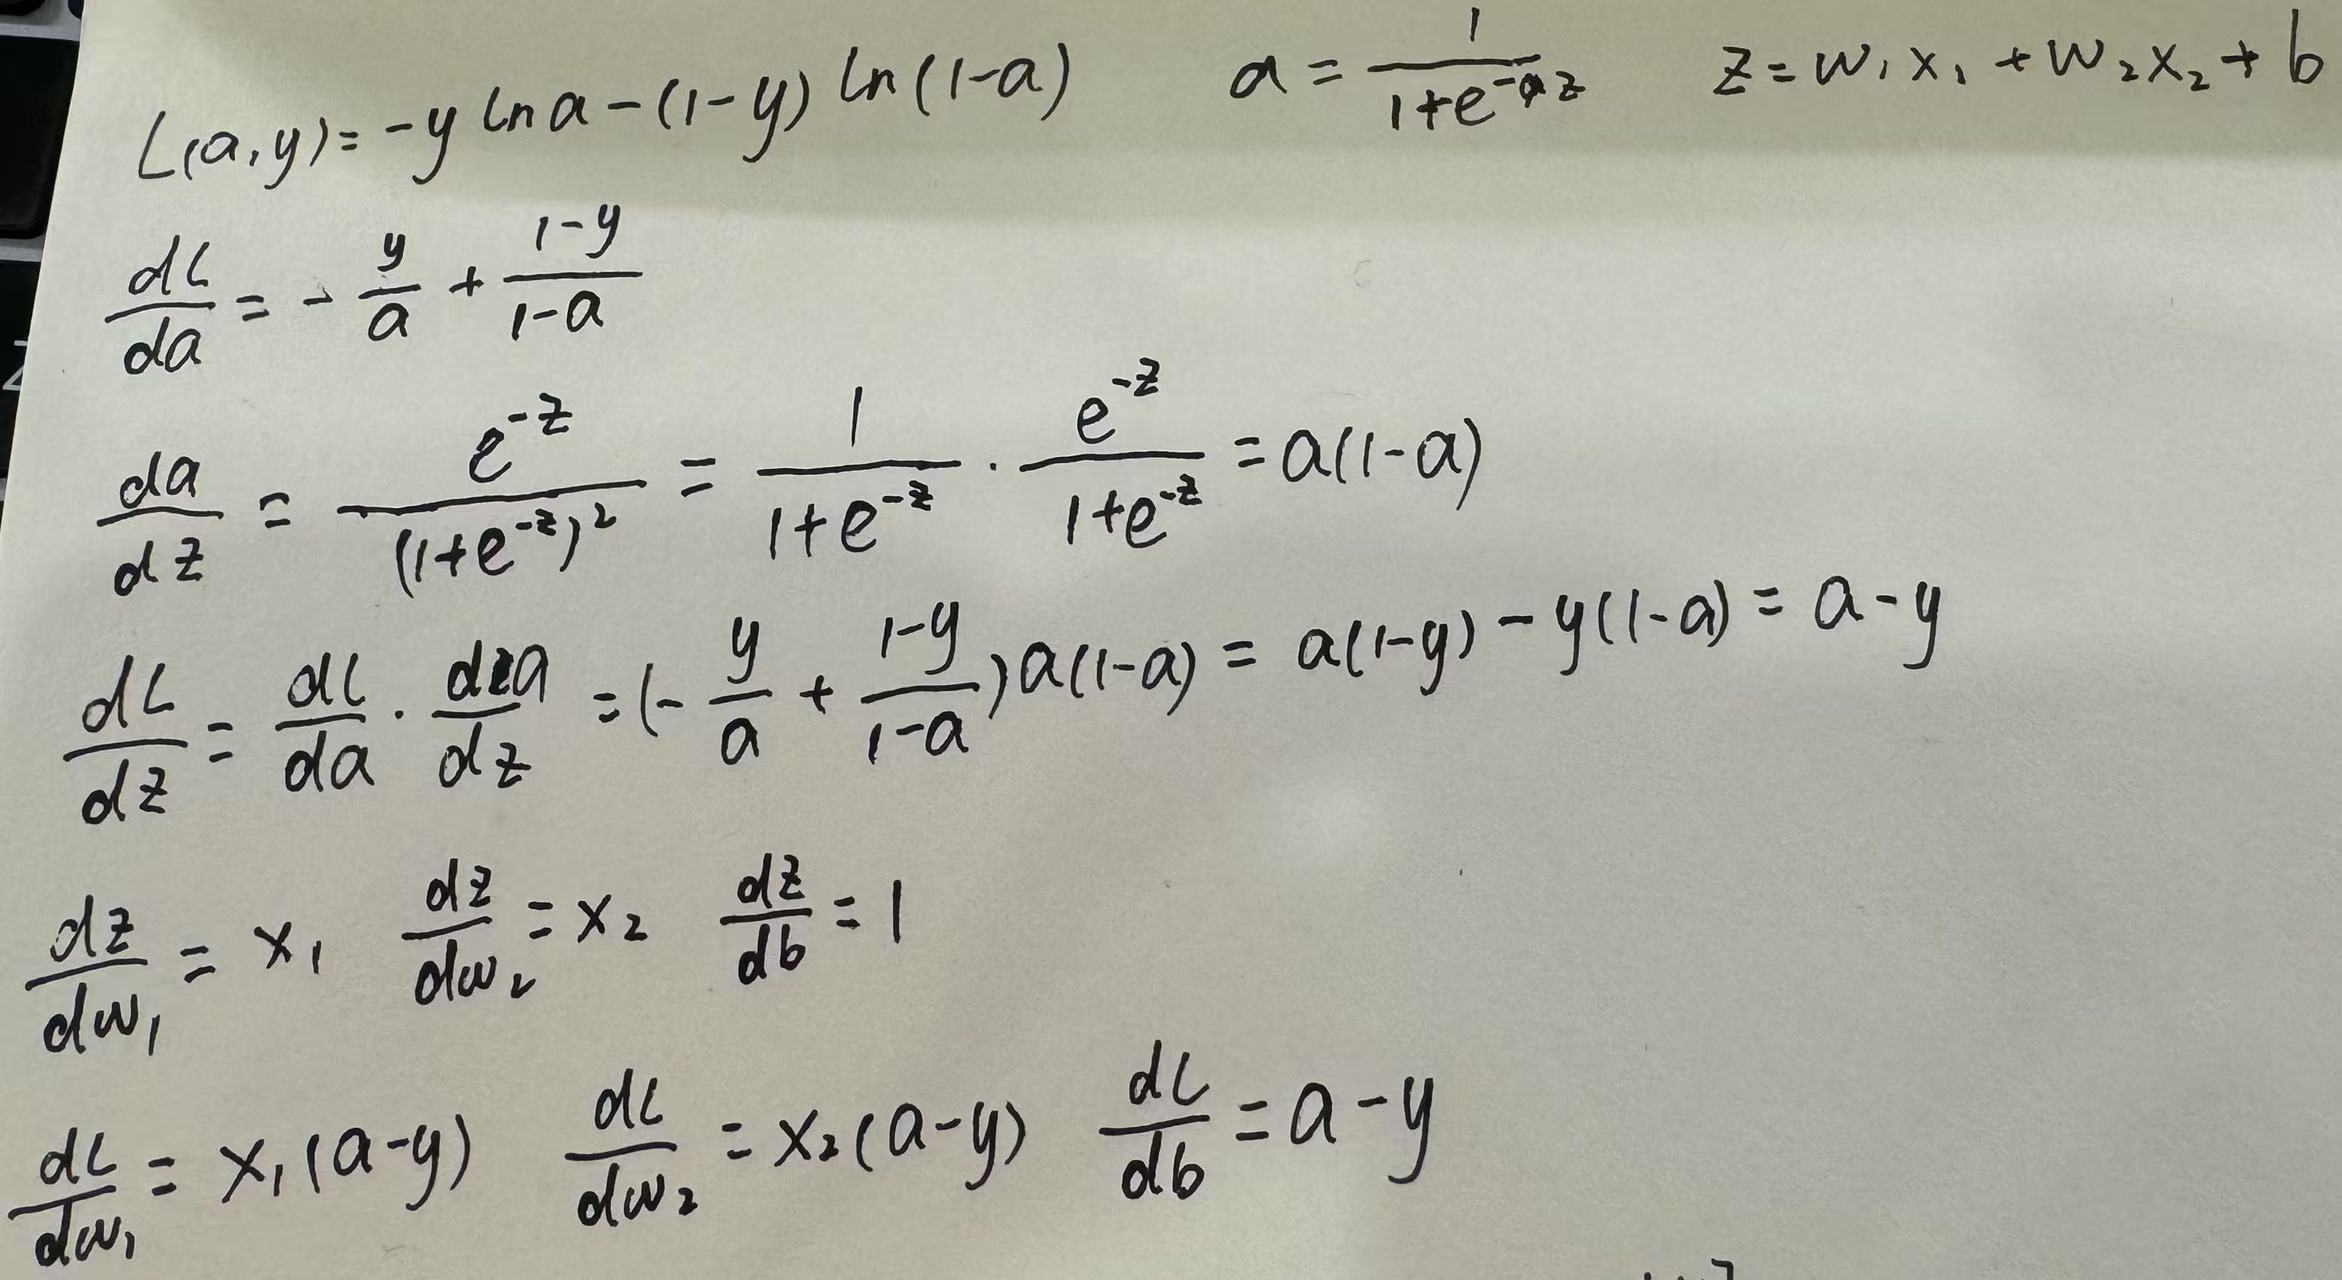 L(a,y)= -y ln a - (1-y) ln(1-a)   a = 1/(1+e^{-z})   z = w₁x₁ + w₂x₂ + b
dL/da = - y/a + (1-y)/(1-a)
da/dz = e^{-z}/(1+e^{-z})² = 1/(1+e^{-z}) · e^{-z}/(1+e^{-z}) = a(1-a)
dL/dz = dL/da · da/dz = (- y/a + (1-y)/(1-a)) a(1-a) = a(1-y) - y(1-a) = a - y
dz/dw₁ = x₁   dz/dw₂ = x₂   dz/db = 1
dL/dw₁ = x₁(a-y)   dL/dw₂ = x₂(a-y)   dL/db = a - y